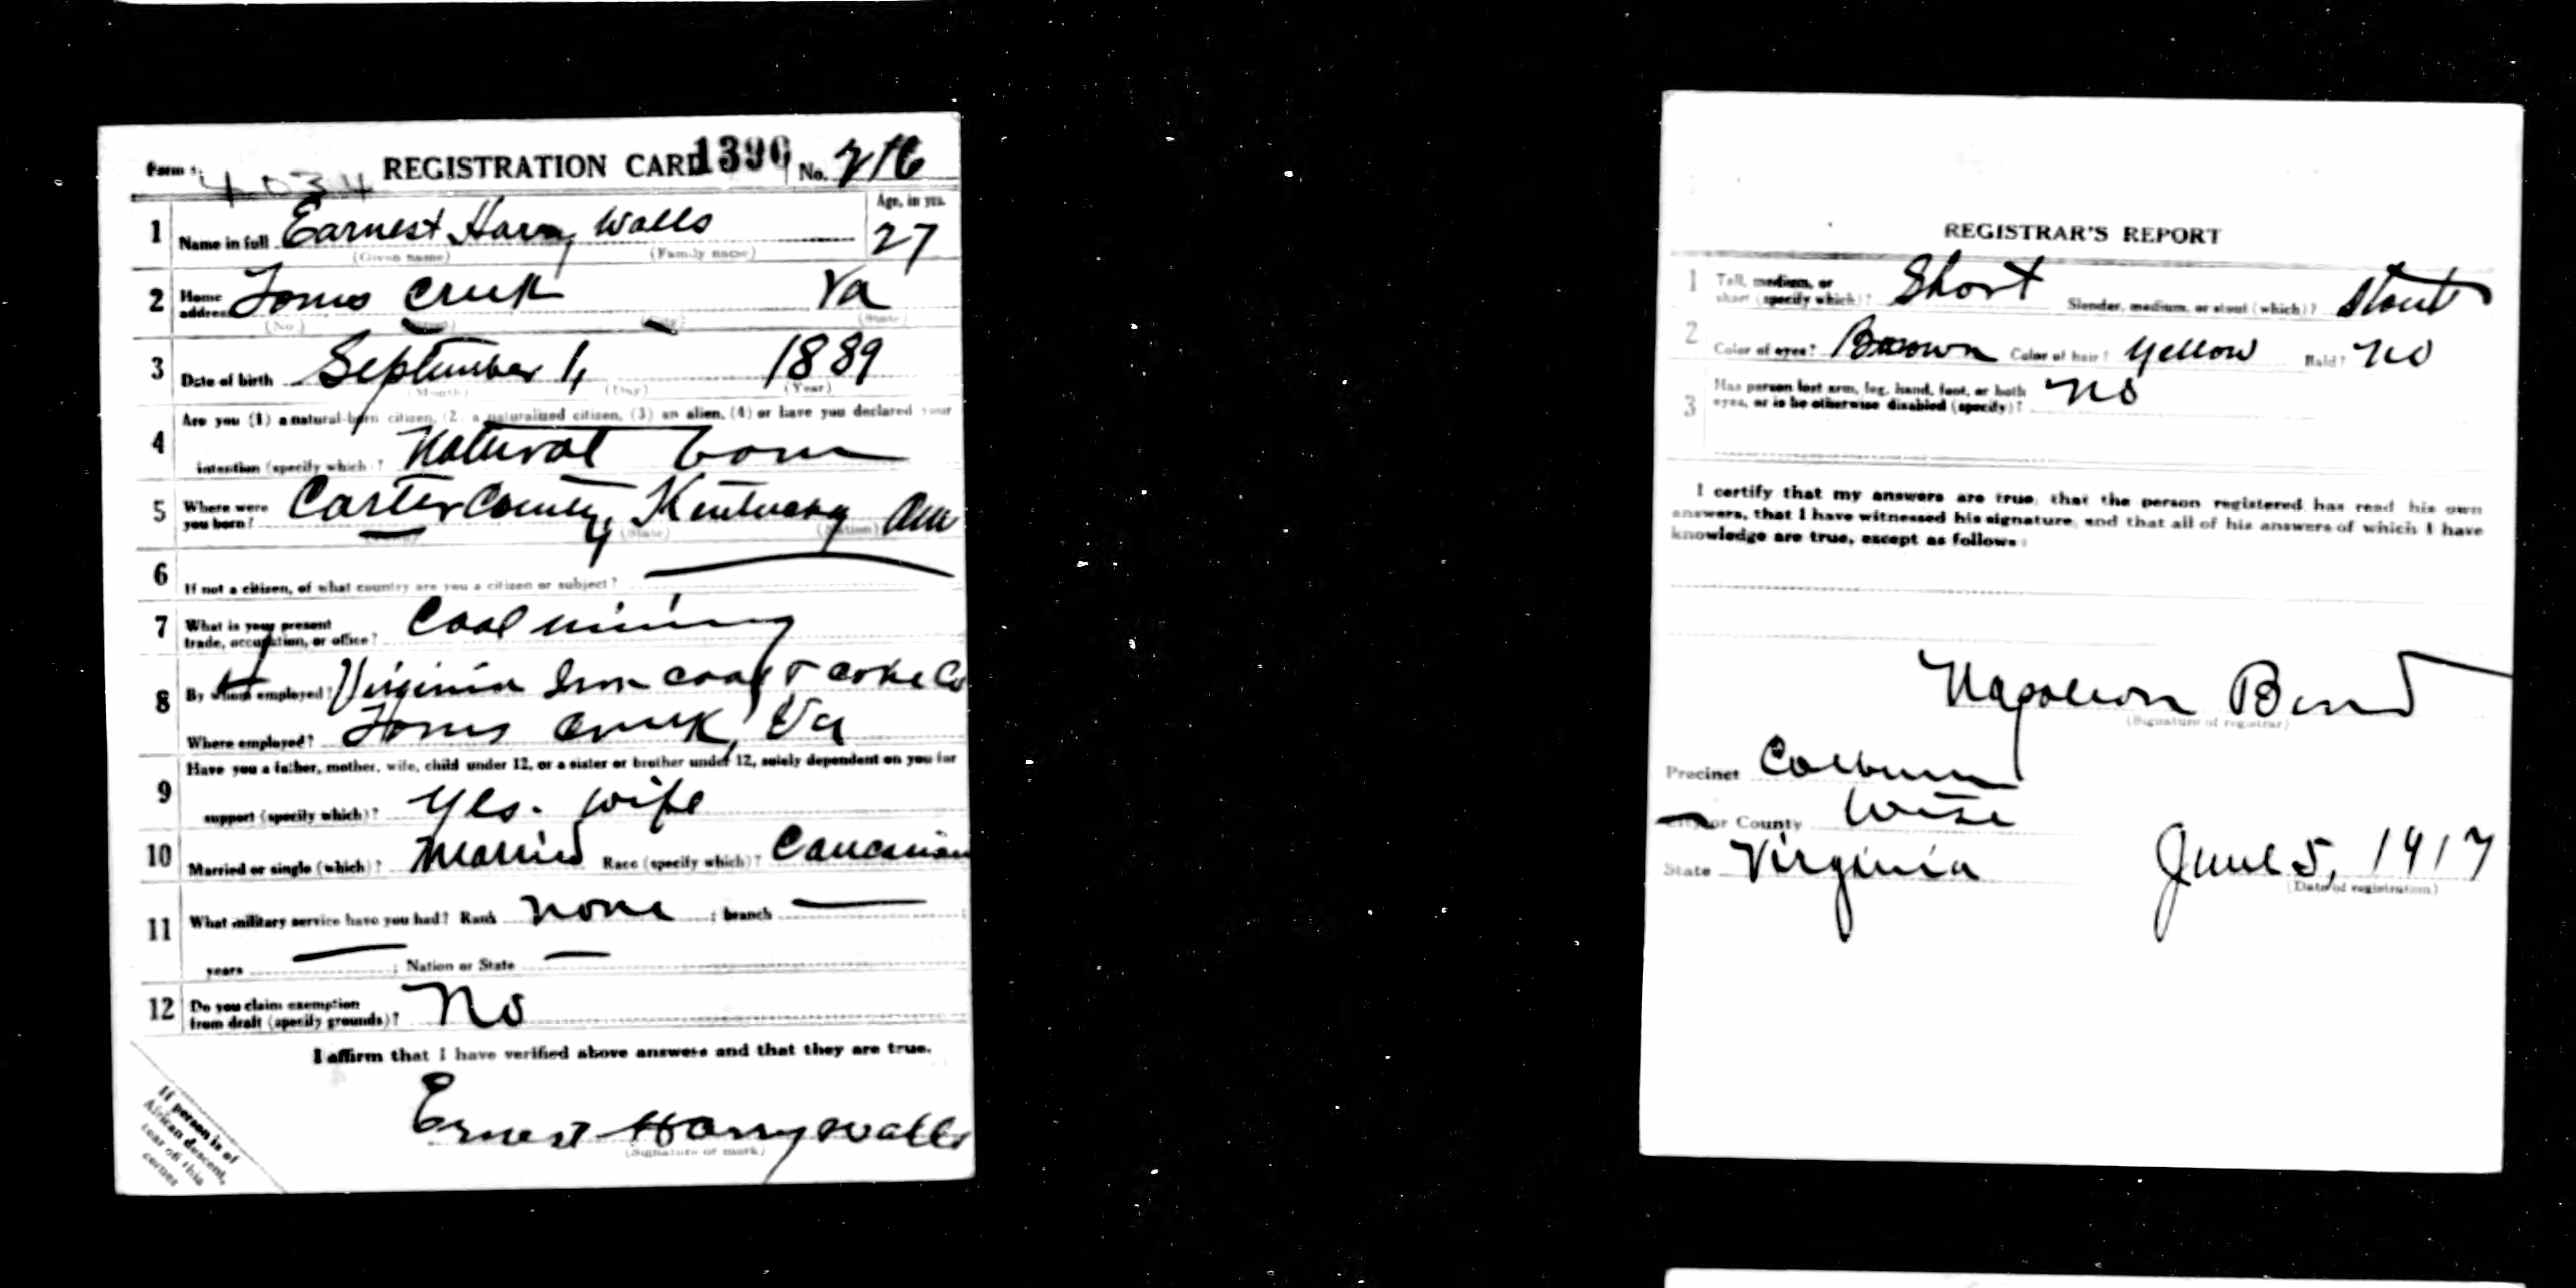 Form 1. 4034 REGISTRATION CARD 1396 No. 216
1 Name in full Earnest Harry Walls Age, in yrs. 27
(Given name) (Family name)
2 Home address Toms Creek Va
(No.) (Street) (City) (State)
3 Date of birth September 1, 1889
(Month) (Day) (Year)
Are you (1) a natural-born citizen, (2) a naturalized citizen, (3) an alien, (4) or have you declared your
4 intention (specify which)? Natural born
5 Where were you born? Carter County, Kentucky Am
(Town) (State) (Nation)
6 If not a citizen, of what country are you a citizen or subject?
7 What is your present trade, occupation, or office? Coal mining
8 By whom employed? Virginia Iron coal & coke Co
Where employed? Toms Creek, Va
Have you a father, mother, wife, child under 12, or a sister or brother under 12, solely dependent on you for
9 support (specify which)? Yes. wife
10 Married or single (which)? Married Race (specify which)? Caucasian
11 What military service have you had? Rank none ; branch
years ; Nation or State
12 Do you claim exemption from draft (specify grounds)? No
I affirm that I have verified above answers and that they are true.
Ernest Harry Walls
(Signature or mark)
If person is of
African descent,
tear off this
corner
REGISTRAR'S REPORT
1 Tall, medium, or short (specify which)? Short Slender, medium, or stout (which)? Stout
2 Color of eyes? Brown Color of hair? Yellow Bald? No
3 Has person lost arm, leg, hand, foot, or both eyes, or is he otherwise disabled (specify)? No
I certify that my answers are true, that the person registered has read his own
answers, that I have witnessed his signature, and that all of his answers of which I have
knowledge are true, except as follows:
Napoleon Bond
(Signature of registrar)
Precinct Coeburn
City or County Wise
State Virginia June 5, 1917
(Date of registration)